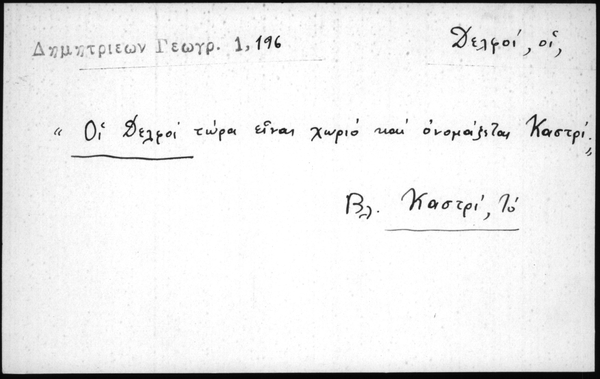 Δημητριεων Γεωγρ. 1, 196
Δελφοί, οἱ,
" Οἱ Δελφοί τώρα εἶναι χωριό καί ὀνομάζεται Καστρί. "
Βλ. Καστρί, τό